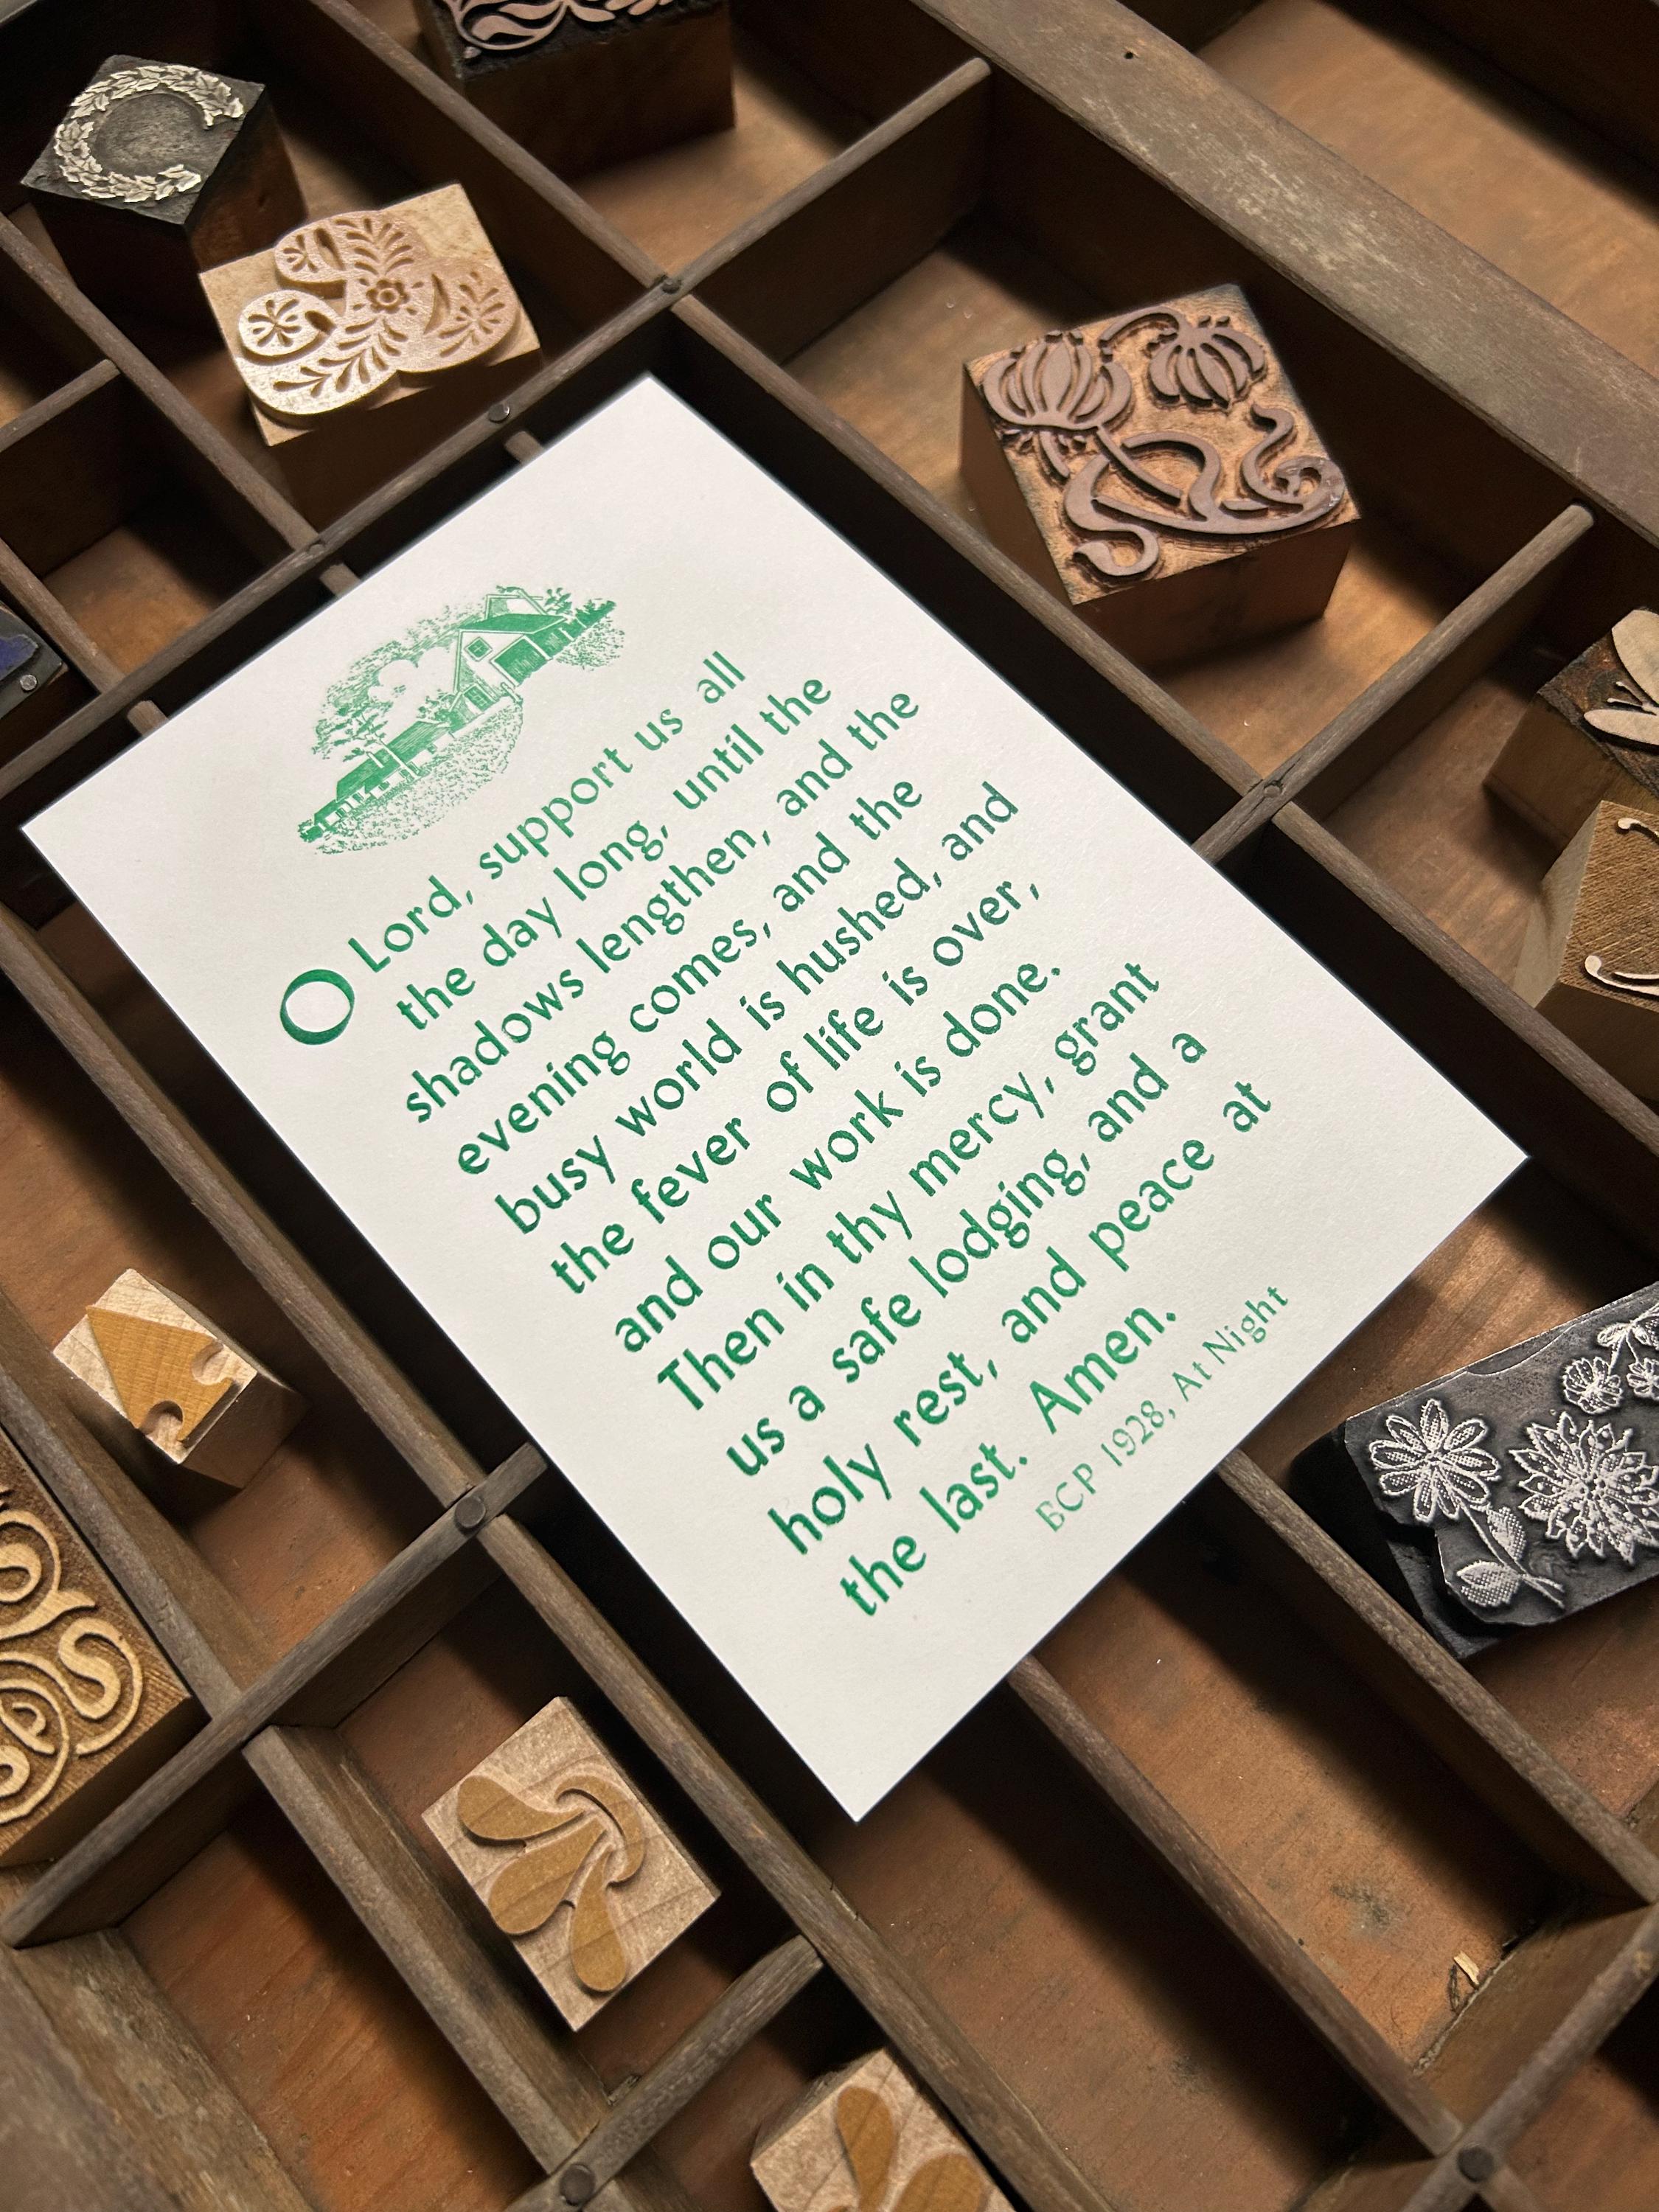 O Lord, support us all
the day long, until the
shadows lengthen, and the
evening comes, and the
busy world is hushed, and
the fever of life is over,
and our work is done.
Then in thy mercy, grant
us a safe lodging, and a
holy rest, and peace at
the last. Amen.
BCP 1928, At Night